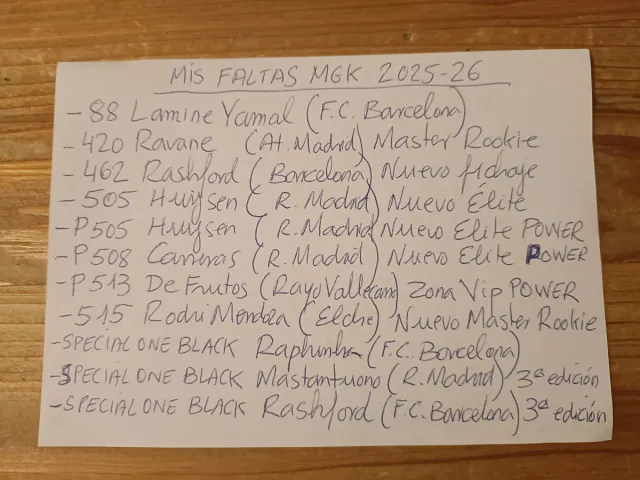 MIS FALTAS MGK 2025-26
- 88 Lamine Yamal (F.C. Barcelona)
- 420 Ravane (At. Madrid) Master Rookie
- 462 Rashford (Barcelona) Nuevo fichaje
- 505 Huijsen (R. Madrid) Nuevo Élite
- P505 Huijsen (R. Madrid) Nuevo Elite POWER
- P508 Carreras (R. Madrid) Nuevo Elite POWER
- P513 De Frutos (Rayo Vallecano) Zona Vip POWER
- 515 Rodri Mendoza (Elche) Nuevo Master Rookie
- SPECIAL ONE BLACK Raphinha (F.C. Barcelona)
- SPECIAL ONE BLACK Mastantuono (R. Madrid) 3ª edición
- SPECIAL ONE BLACK Rashford (F.C. Barcelona) 3ª edición